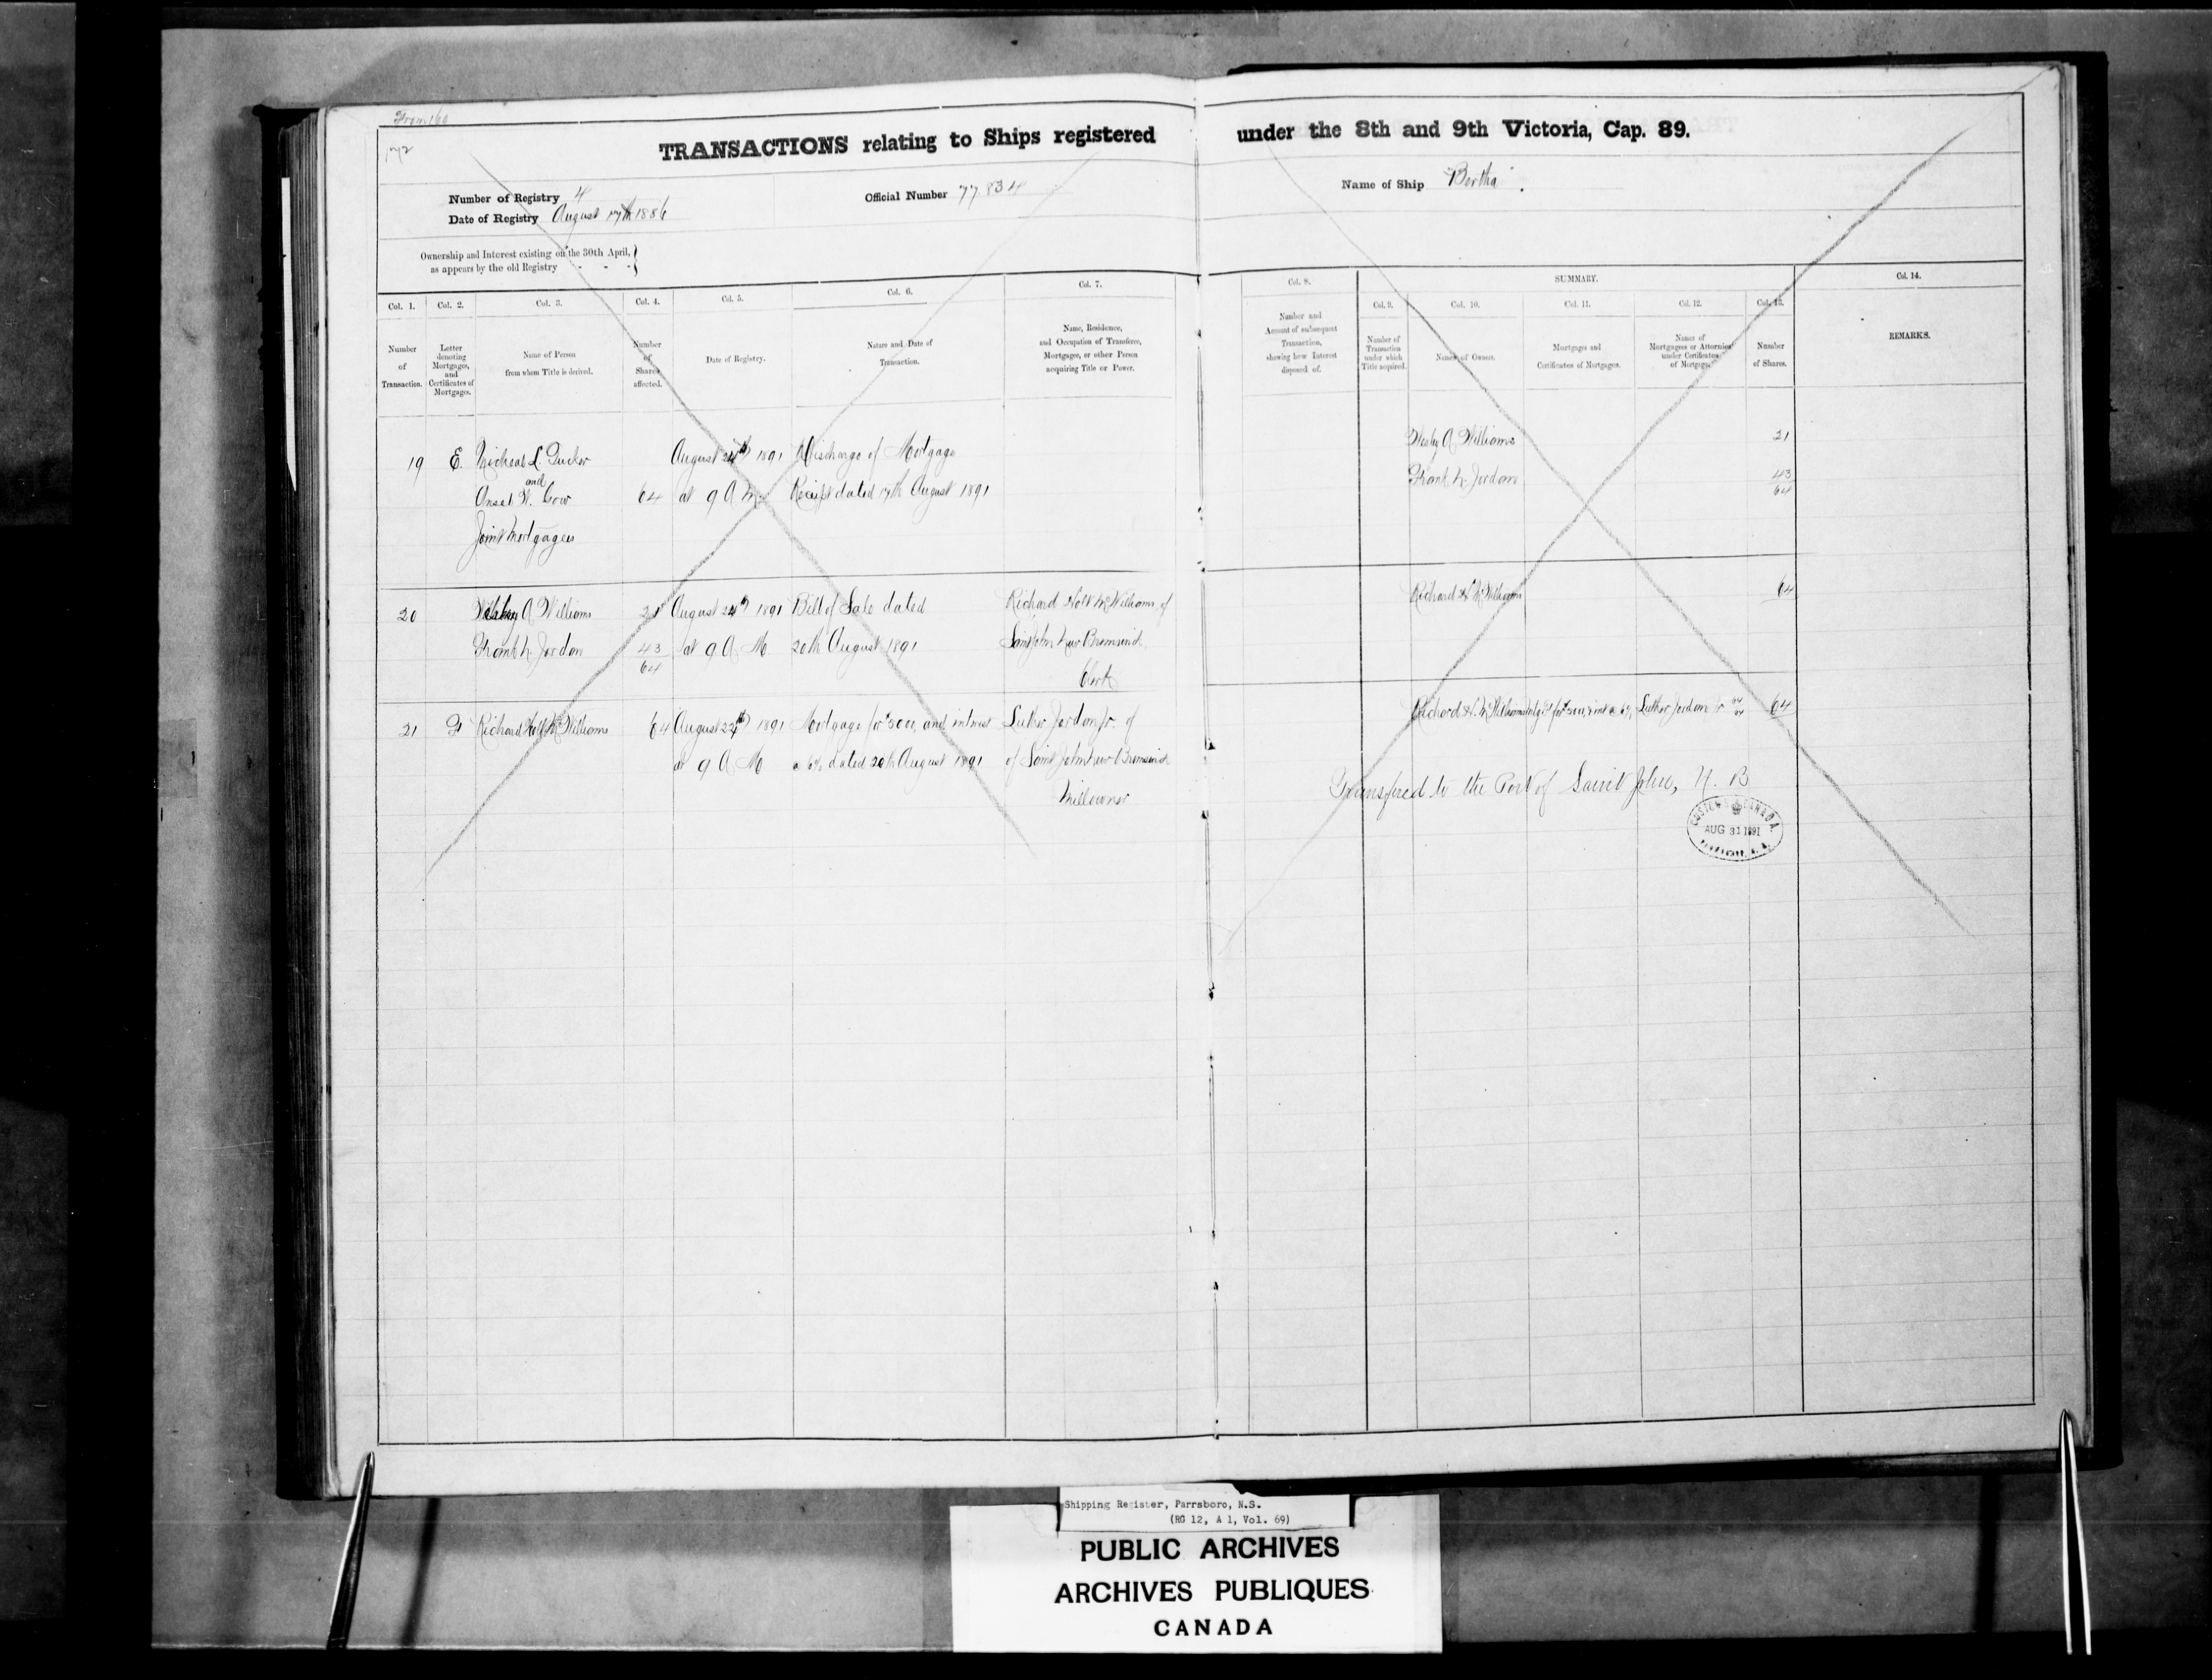 From 160
172
TRANSACTIONS relating to Ships registered under the 8th and 9th Victoria, Cap. 89.
Number of Registry 4
Official Number 77.834
Name of Ship "Bertha".
Date of Registry August 17th 1886
Ownership and Interest existing on the 30th April,
as appears by the old Registry - - -
Col. 1.
Number
of
Transaction.
Col. 2.
Letter
denoting
Mortgages,
and
Certificates of
Mortgages.
Col. 3.
Name of Person
from whom Title is derived.
Col. 4.
Number
of
Shares
affected.
Col. 5.
Date of Registry.
Col. 6.
Nature and Date of
Transaction.
Col. 7.
Name, Residence,
and Occupation of Transferee,
Mortgagee, or other Person
acquiring Title or Power.
Col. 8.
Number and
Account of subsequent
Transaction,
showing how Interest
disposed of.
SUMMARY.
Col. 9.
Number of
Transaction
under which
Title acquired.
Col. 10.
Names of Owners.
Col. 11.
Mortgages and
Certificates of Mortgages.
Col. 12.
Names of
Mortgagees or Attornies
under Certificates
of Mortgage.
Col. 13.
Number
of Shares.
Col. 14.
REMARKS.
19 E. L. Tucker August 24th 1891 Discharge of Mortgage
and
W. 64 at 9 A M. Receipt dated 17th August 1891
Joint Mortgagees
A Williams 21
Frank N. Jordan 43
64
20 A Williams 21 August 24th 1891 Bill of Sale dated Richard Holt McWilliams, of
Frank N. Jordan 43 at 9 A M 20th August 1891 Saint John New Brunswick
64
Clerk
Richard H. McWilliams 64
21 F Richard Holt McWilliams 64 August 24th 1891 Mortgage for $500, and intrest Luther Jordan Jr. of
at 9 A M a 6% dated 20th August 1891 of Saint John New Brunswick
Millowner
Richard H. McWilliams for $500, & int a 6% Luther Jordan Jr 64/64 64
Transfered to the Port of Saint John, N. B
CUSTOMS CANADA
AUG 31 1891
Shipping Register, Parrsboro, N.S.
(RG 12, A 1, Vol. 69)
PUBLIC ARCHIVES
ARCHIVES PUBLIQUES
CANADA